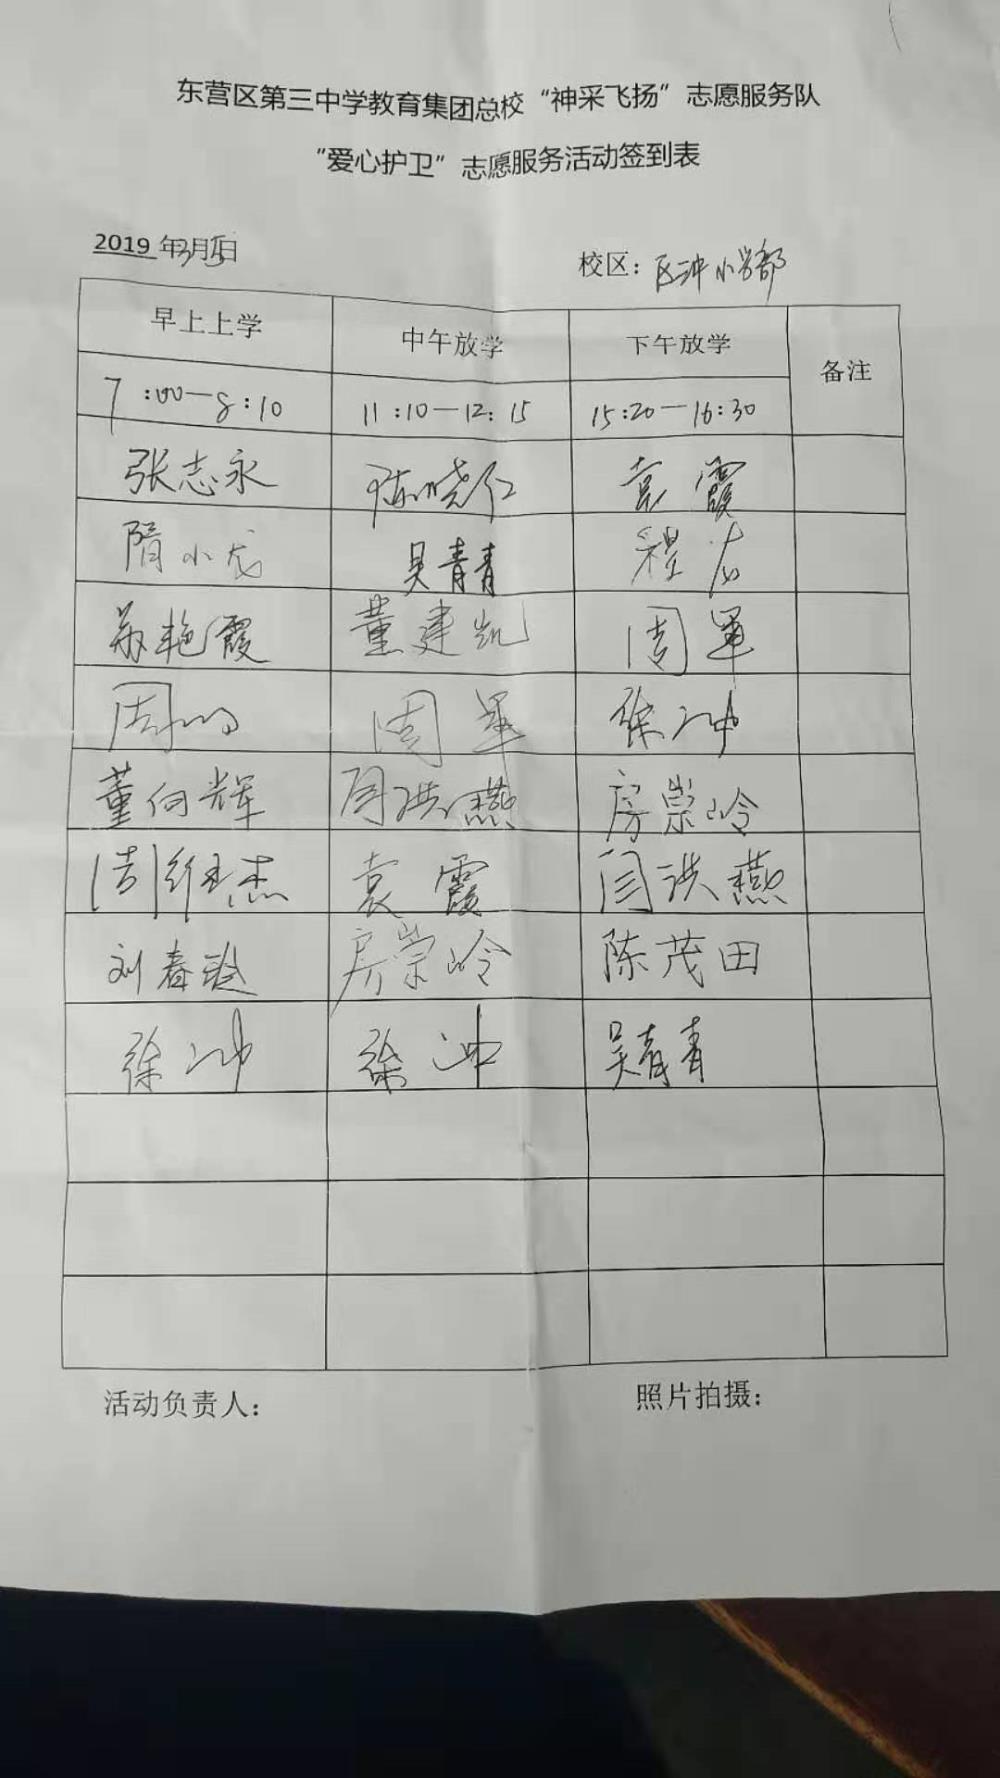 东营区第三中学教育集团总校“神采飞扬”志愿服务队
“爱心护卫”志愿服务活动签到表
2019 年3月15日 校区：区三冲小学部
早上上学 中午放学 下午放学 备注
7:00—8:10 11:10—12:15 15:20—16:30
张志永 陈晓红 袁霞
隋小龙 吴青青 程龙
苏艳霞 董建凯 周军
周 周军 徐冲
董向辉 闫洪燕 房崇岭
周维杰 袁霞 闫洪燕
刘春 房崇岭 陈茂田
徐冲 徐冲 吴青青
活动负责人： 照片拍摄：